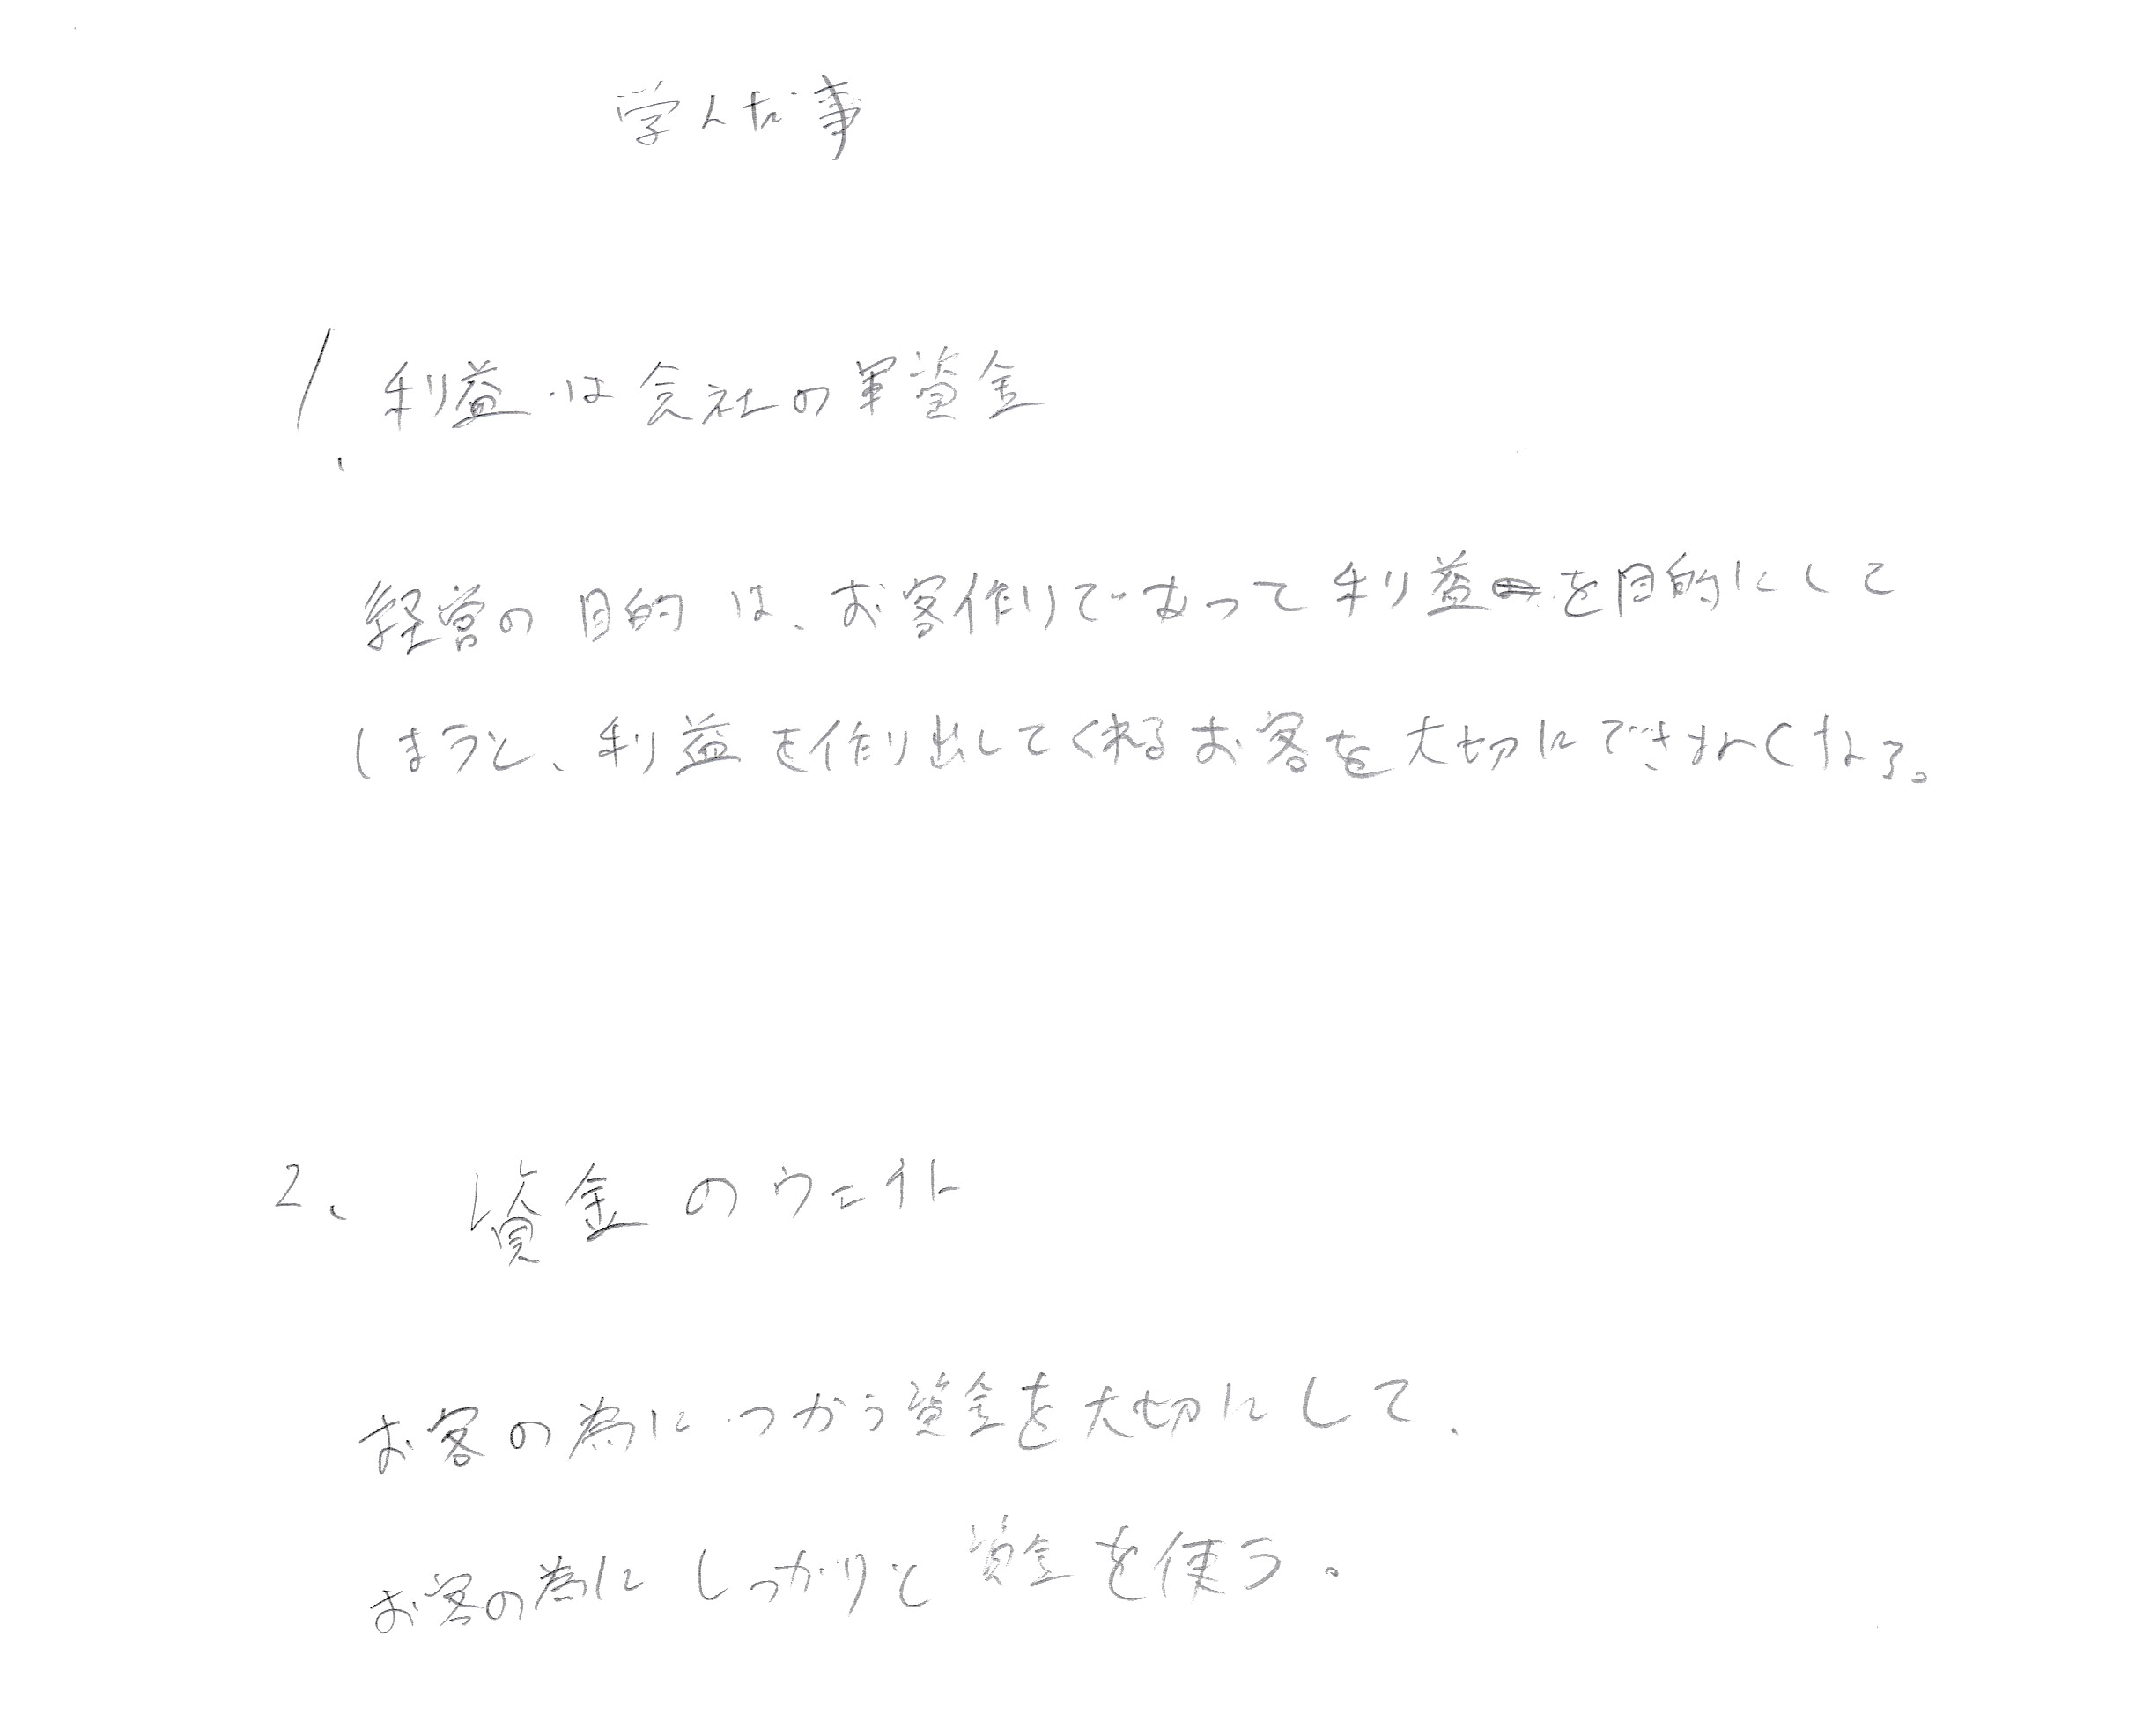 学んだ事
1、利益は会社の軍資金
経営の目的は、お客作りであって利益を目的にして
しまうと、利益を作り出してくれるお客を大切にできなくなる。
2、資金のウェイト
お客の為につかう資金を大切にして、
お客の為にしっかりと資金を使う。